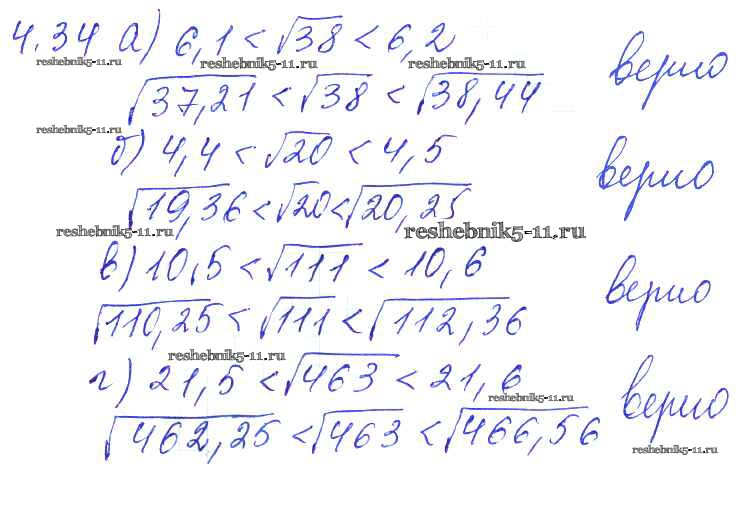 4.34 а) 6,1 < √38 < 6,2 верно
reshebnik5-11.ru reshebnik5-11.ru reshebnik5-11.ru
√37,21 < √38 < √38,44
reshebnik5-11.ru
б) 4,4 < √20 < 4,5 верно
√19,36 < √20 < √20,25
reshebnik5-11.ru reshebnik5-11.ru
в) 10,5 < √111 < 10,6 верно
√110,25 < √111 < √112,36
reshebnik5-11.ru
г) 21,5 < √463 < 21,6 верно
reshebnik5-11.ru
√462,25 < √463 < √466,56
reshebnik5-11.ru